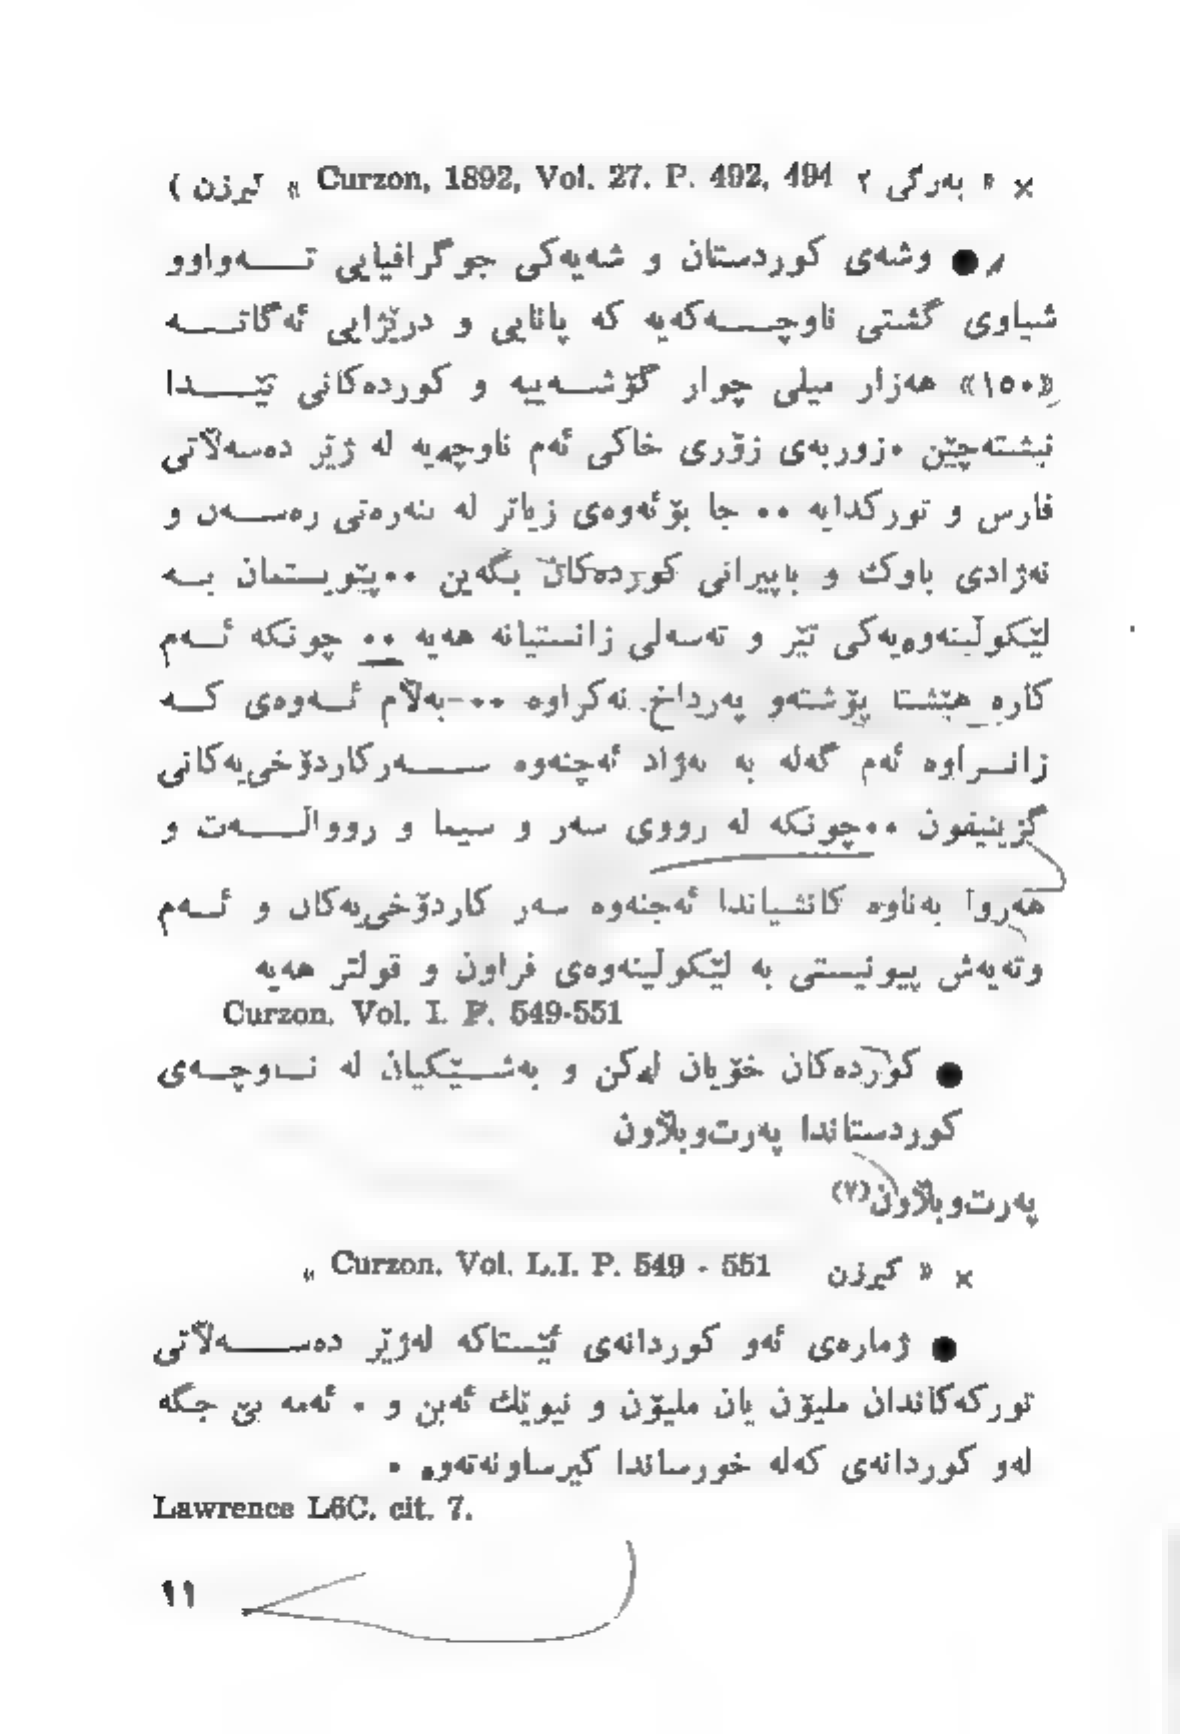 × « بەرگی ٢ Curzon, 1892, Vol. 27. P. 492, 494 » کیرزن )
● وشەی کوردستان و شەیەکی جوگرافیایی تـــەواوو
شیاوی گشتی ناوچـــەکەیە کە پانایی و درێژایی ئەگاتــە
«١٥٠» هەزار میلی چوار گۆشــەییە و کوردەکانی تێـــدا
نیشتەچێن ٠زوربەی زۆری خاکی ئەم ناوچەیە لە ژێر دەسەڵاتی
فارس و تورکدایە ٠٠ جا بۆئەوەی زیاتر لە بنەرەتی رەســەن و
نەژادی باوك و باپیرانی کوردەکان بگەین ٠٠پێویستمان بــە
لێکوڵینەوەیەکی تێر و تەسەلی زانستیانە هەیە ٠٠ چونکە ئــەم
کارە هێشتا پۆشتەو پەرداخ نەکراوە ٠٠-بەڵام ئــەوەی کــە
زانــراوە ئەم گەلە بە نەژاد ئەچنەوە ســـەرکاردۆخی‌یەکانی
گزینیفون ٠٠چونکە لە رووی سەر و سیما و رووالـــەت و
هەروا بەناوە کانشیاندا ئەجنەوە سەر کاردۆخی‌یەکان و ئــەم
وتەیەش پیونیستی بە لێکوڵینەوەی فراون و قولتر هەیە
Curzon. Vol. I. P. 549-551
● کوردەکان خۆیان لەکن و بەشــێکیان لە نــاوچــەی
کوردستاندا پەرت‌وبڵاون
پەرت‌وبڵاون(٧)
× « کیرزن Curzon. Vol. L.I. P. 549 - 551 »
● ژمارەی ئەو کوردانەی ئێستاکە لەژێر دەســـەڵاتی
تورکەکاندان ملیۆن یان ملیۆن و نیوێك ئەبن و ٠ ئەمە بێ جگە
لەو کوردانەی کەلە خورساندا گیرساونەتەوە ٠
Lawrence L6C. cit. 7.
١١